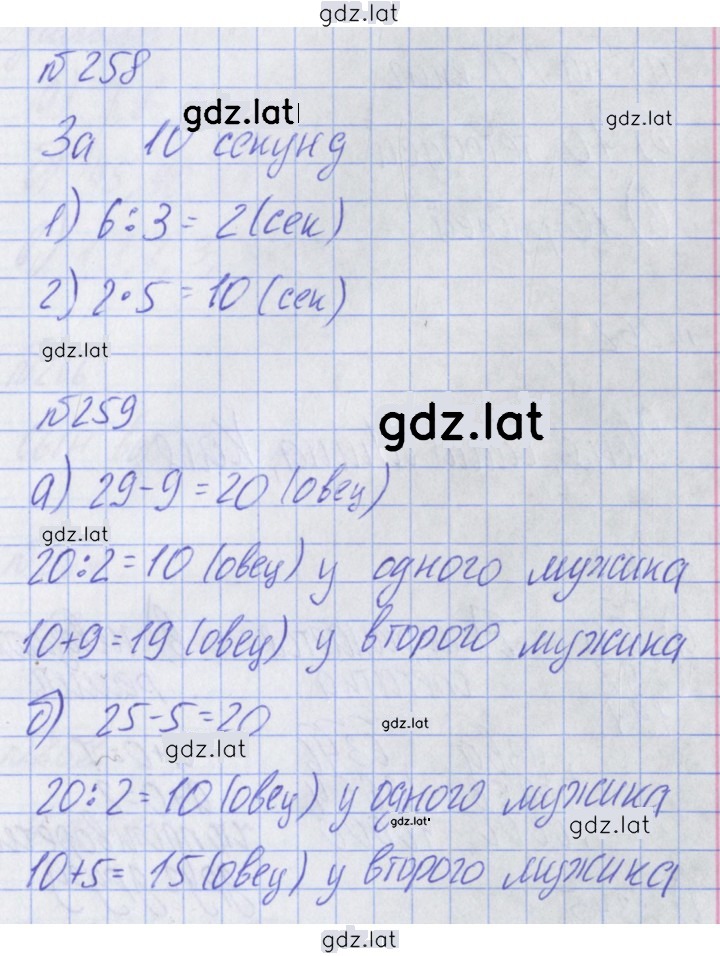 gdz.lat
№258
gdz.lat
gdz.lat
За 10 секунд
1) 6:3 = 2 (сек)
2) 2•5 = 10 (сек)
gdz.lat
№259
gdz.lat
а) 29-9 = 20 (овец)
gdz.lat
20:2 = 10 (овец) у одного мужика
10+9 = 19 (овец) у второго мужика
б) 25-5 = 20
gdz.lat
gdz.lat
20:2 = 10 (овец) у одного мужика
gdz.lat
gdz.lat
10+5 = 15 (овец) у второго мужика
gdz.lat